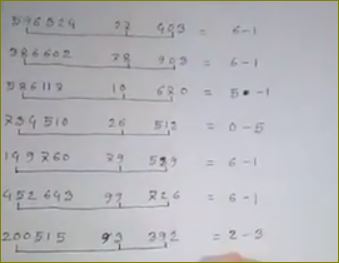 596324 27 403 = 6-1
386602 78 903 = 6-1
386117 10 670 = 5-1
734510 26 512 = 0-5
149760 79 589 = 6-1
452643 99 726 = 6-1
200515 93 392 = 2-3